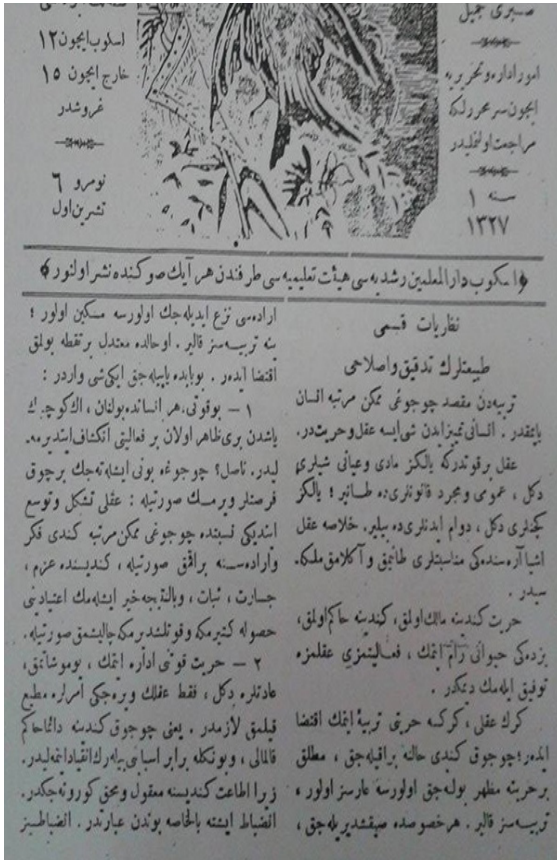 صبری جمیل
امور اداره و تحریریه
ایچون سر محررلكه
مراجعت اولنملیدر
سنه ۱
۱۳۲۷
اسلوب ایچون ۱۲
خارج ایچون ۱۵
غروشدر
نومرو ۶
تشرین اول
﴿اسكوب دارالمعلمین رشدیه سی هیئت تعلیمیه سی طرفندن هر آیك صوكنده نشر اولنور﴾
نظریات قسمی
طبیعتلرك تدقیق و اصلاحی
تربیه‌دن مقصد چوجوغی ممكن مرتبه انسان
یاپمقدر . انسانی تمییز ایدن شی ایسه عقل و حریتدر.
عقل بر قوتدركه یالكز مادی و عیانی شیلری
دكل ، عمومی و مجرد قانونلری‌ده طانیر ؛ یالكز
كچنلری دكل ، دوام ایدنلری‌ده بیلیر. خلاصه عقل
اشیا آره سنده‌كی مناسبتلری طانیمق و آكلامق ملكه‌
سیدر .
حریت كندینه مالك اولمق ، كندینه حاكم اولمق،
بزده‌كی حیوانی رام ایتمك ، فعالیتمزی عقلمزه
توفیق ایله‌مك دیمكدر .
كرك عقلی ، كركسه حریتی تربیهٔ ایتمك اقتضا
ایدر؛ چوجوق كندی حالنه براقیله‌جق ، مطلق
بر حریته مظهر بوله‌جق اولورسه عارسز اولور ه
تربیه‌سز قالیر . هر خصوصده صیقشدیریله‌جق ،
اراده‌سی نزع ایدیله‌جك اولورسه مسكین اولور ؛
ینه تربیه‌سز قالیر . اوحالده معتدل بر نقطه بولمق
اقتضا ایدر . بوبابده یاپیله‌جق ایكی شی واردر :
۱ — بوقوتی، هر انسانده بولنان ، اك كوچك
یاشدن بری ظاهر اولان بر فعالیتی انكشاف ایتدیرمه‌
لیدر. ناصل؟ چوجوغه بونی ایشله‌ته‌جك بر چوق
فرصتلر ویرمك صورتیله : عقلی تشكل و توسع
ایتدیكی نسبتده چوجوغی ممكن مرتبه كندی فكر
و اراده‌سنه براقمق صورتیله ، كندیسنده عزم ،
جسارت ، ثبات ، وبالنتیجه خبر ایشله‌مك اعتیادینی
حصوله كتیرمكه و قوتلشدیرمكه چالیشمق صورتیله.
۲ — حریت قوتنی اداره ایتمك ، یوموشاتمق،
عادتلره دكل ، فقط عقلك ویره‌جكی امرلره مطیع
قیلمق لازمدر . یعنی چوجوق كندینه دائما حاكم
قالمالی ، وبونكله برابر اسبابی بیله‌رك انقیاد ایتمه‌لیدر.
زیرا اطاعت كندیسنه معقول و محق كورونه‌جكدر.
انضباط ایشته بالخاصه بوندن عبارتدر . انضباطسز